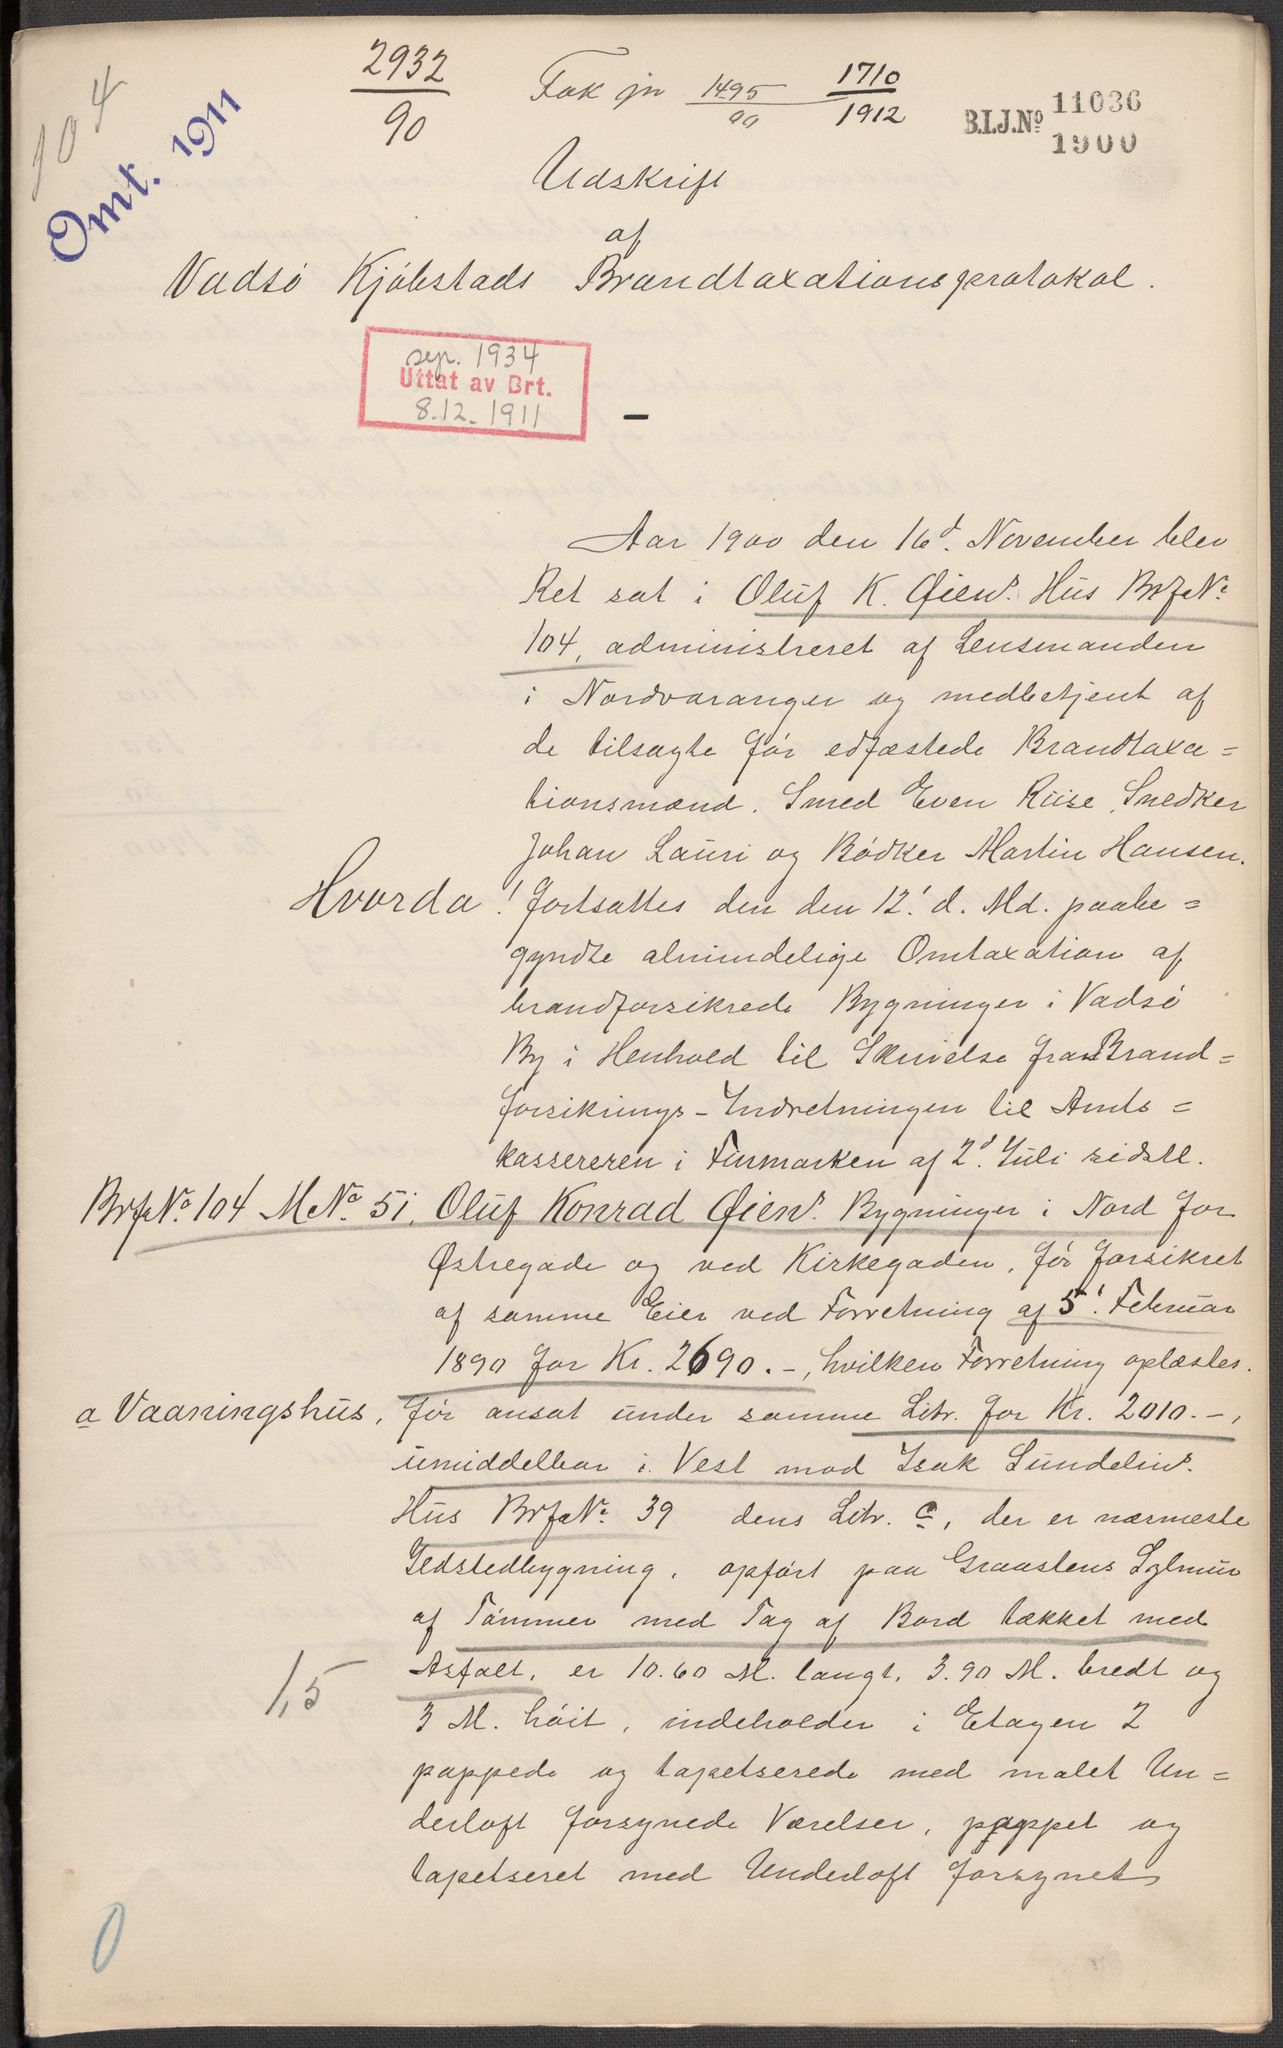 104
Omt. 1911
2932
90
Fak jn 1495
99
1710
1912
B.I.J.No 11036
1900
Udskrift
af
Vadsö Kjöbstads Brandtaxationsprotokol.
sep. 1934
Uttat av Brt.
8.12.1911
Aar 1900 den 16d. November blev
Ret sat i Oluf K. Øiens Hus BrfNo
104, administreret af Lensmanden
i Nordvaranger og medbetjent af
de tilsagte för edfæstede Brandtaxa=
tionsmænd. Smed Even Riise, Snedker
Johan Lauri og Bödker Martin Hansen.
Hvorda! fortsattes den den 12' d. Md. paabe=
gyndte almindelige Omtaxation af
brandforsikrede Bygninger i Vadsö
By i Henhold til Skrivelse fra Brand=
forsikrings-Indretningen til Amts=
kassereren i Finmarken af 2d. Juli sidstl.
BrfNo. 104 MNo. 51. Oluf Konrad Øiens Bygninger i Nord for
Østregade og ved Kirkegaden, för forsikret
af samme Eier ved Forretning af 5'. Februar
1890 for Kr. 2690.-, hvilken Forretning oplæstes.
a Vaaningshus, för ansat under samme Litr. for Kr. 2010.-,
umiddelbar i Vest mod Isak Sundelins
Hus BrfNo. 39 dens Litr. c, der er nærmeste
Ildstedbygning, opfört paa Graastens Sylmur
af Tömmer med Tag af Bord tækket med
Asfalt, er 10.60 M. langt, 3.90 M. bredt og
1,5
3 M. höit, indeholder i Etagen 2
pappede og tapetserede med malet Un=
derloft forsynede Værelser, pappet og
tapetseret med Underloft forsynet
0